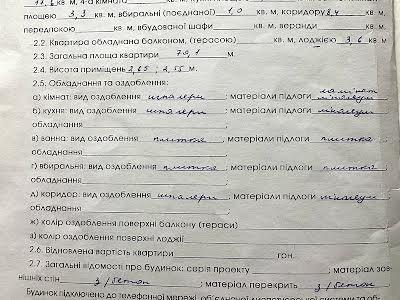 кв. м, 4-а кімната
площею 3,3 кв. м, вбиральні (поєднаної) 1,2 кв. м, коридору 8,4
передпокою кв. м, вбудованої шафи кв. м, веранди кв. м.
2.2. Квартира обладнана балконом, (терасою) кв. м, лоджією 3,6 кв. м
2.3. Загальна площа квартири 79,1 м.
2.4. Висота приміщень 2,65; 2,55 м.
2.5. Обладнання та оздоблення:
а) кімнат: вид оздоблення шпалери; матеріали підлоги ламінат лінолеум
б) кухня: вид оздоблення шпалери; матеріали підлоги лінолеум
обладнання
в) ванна: вид оздоблення плитка; матеріали підлоги плитка,
обладнання
г) вбиральня: вид оздоблення плитка; матеріали підлоги плитка,
обладнання
д) коридор: вид оздоблення шпалери; матеріали підлоги лінолеум
обладнання
ж) колір оздоблення поверхні балкону (тераси)
з) колір оздоблення поверхні лоджії
2.6. Відновна вартість квартири грн.
2.7. Загальні відомості про будинок: серія проекту ; матеріал зов-
нішніх стін з/бетон; матеріал перекрить з/бетон
Будинок підключено до телефонної мережі, об'єднаної диспетчерської системи та об-